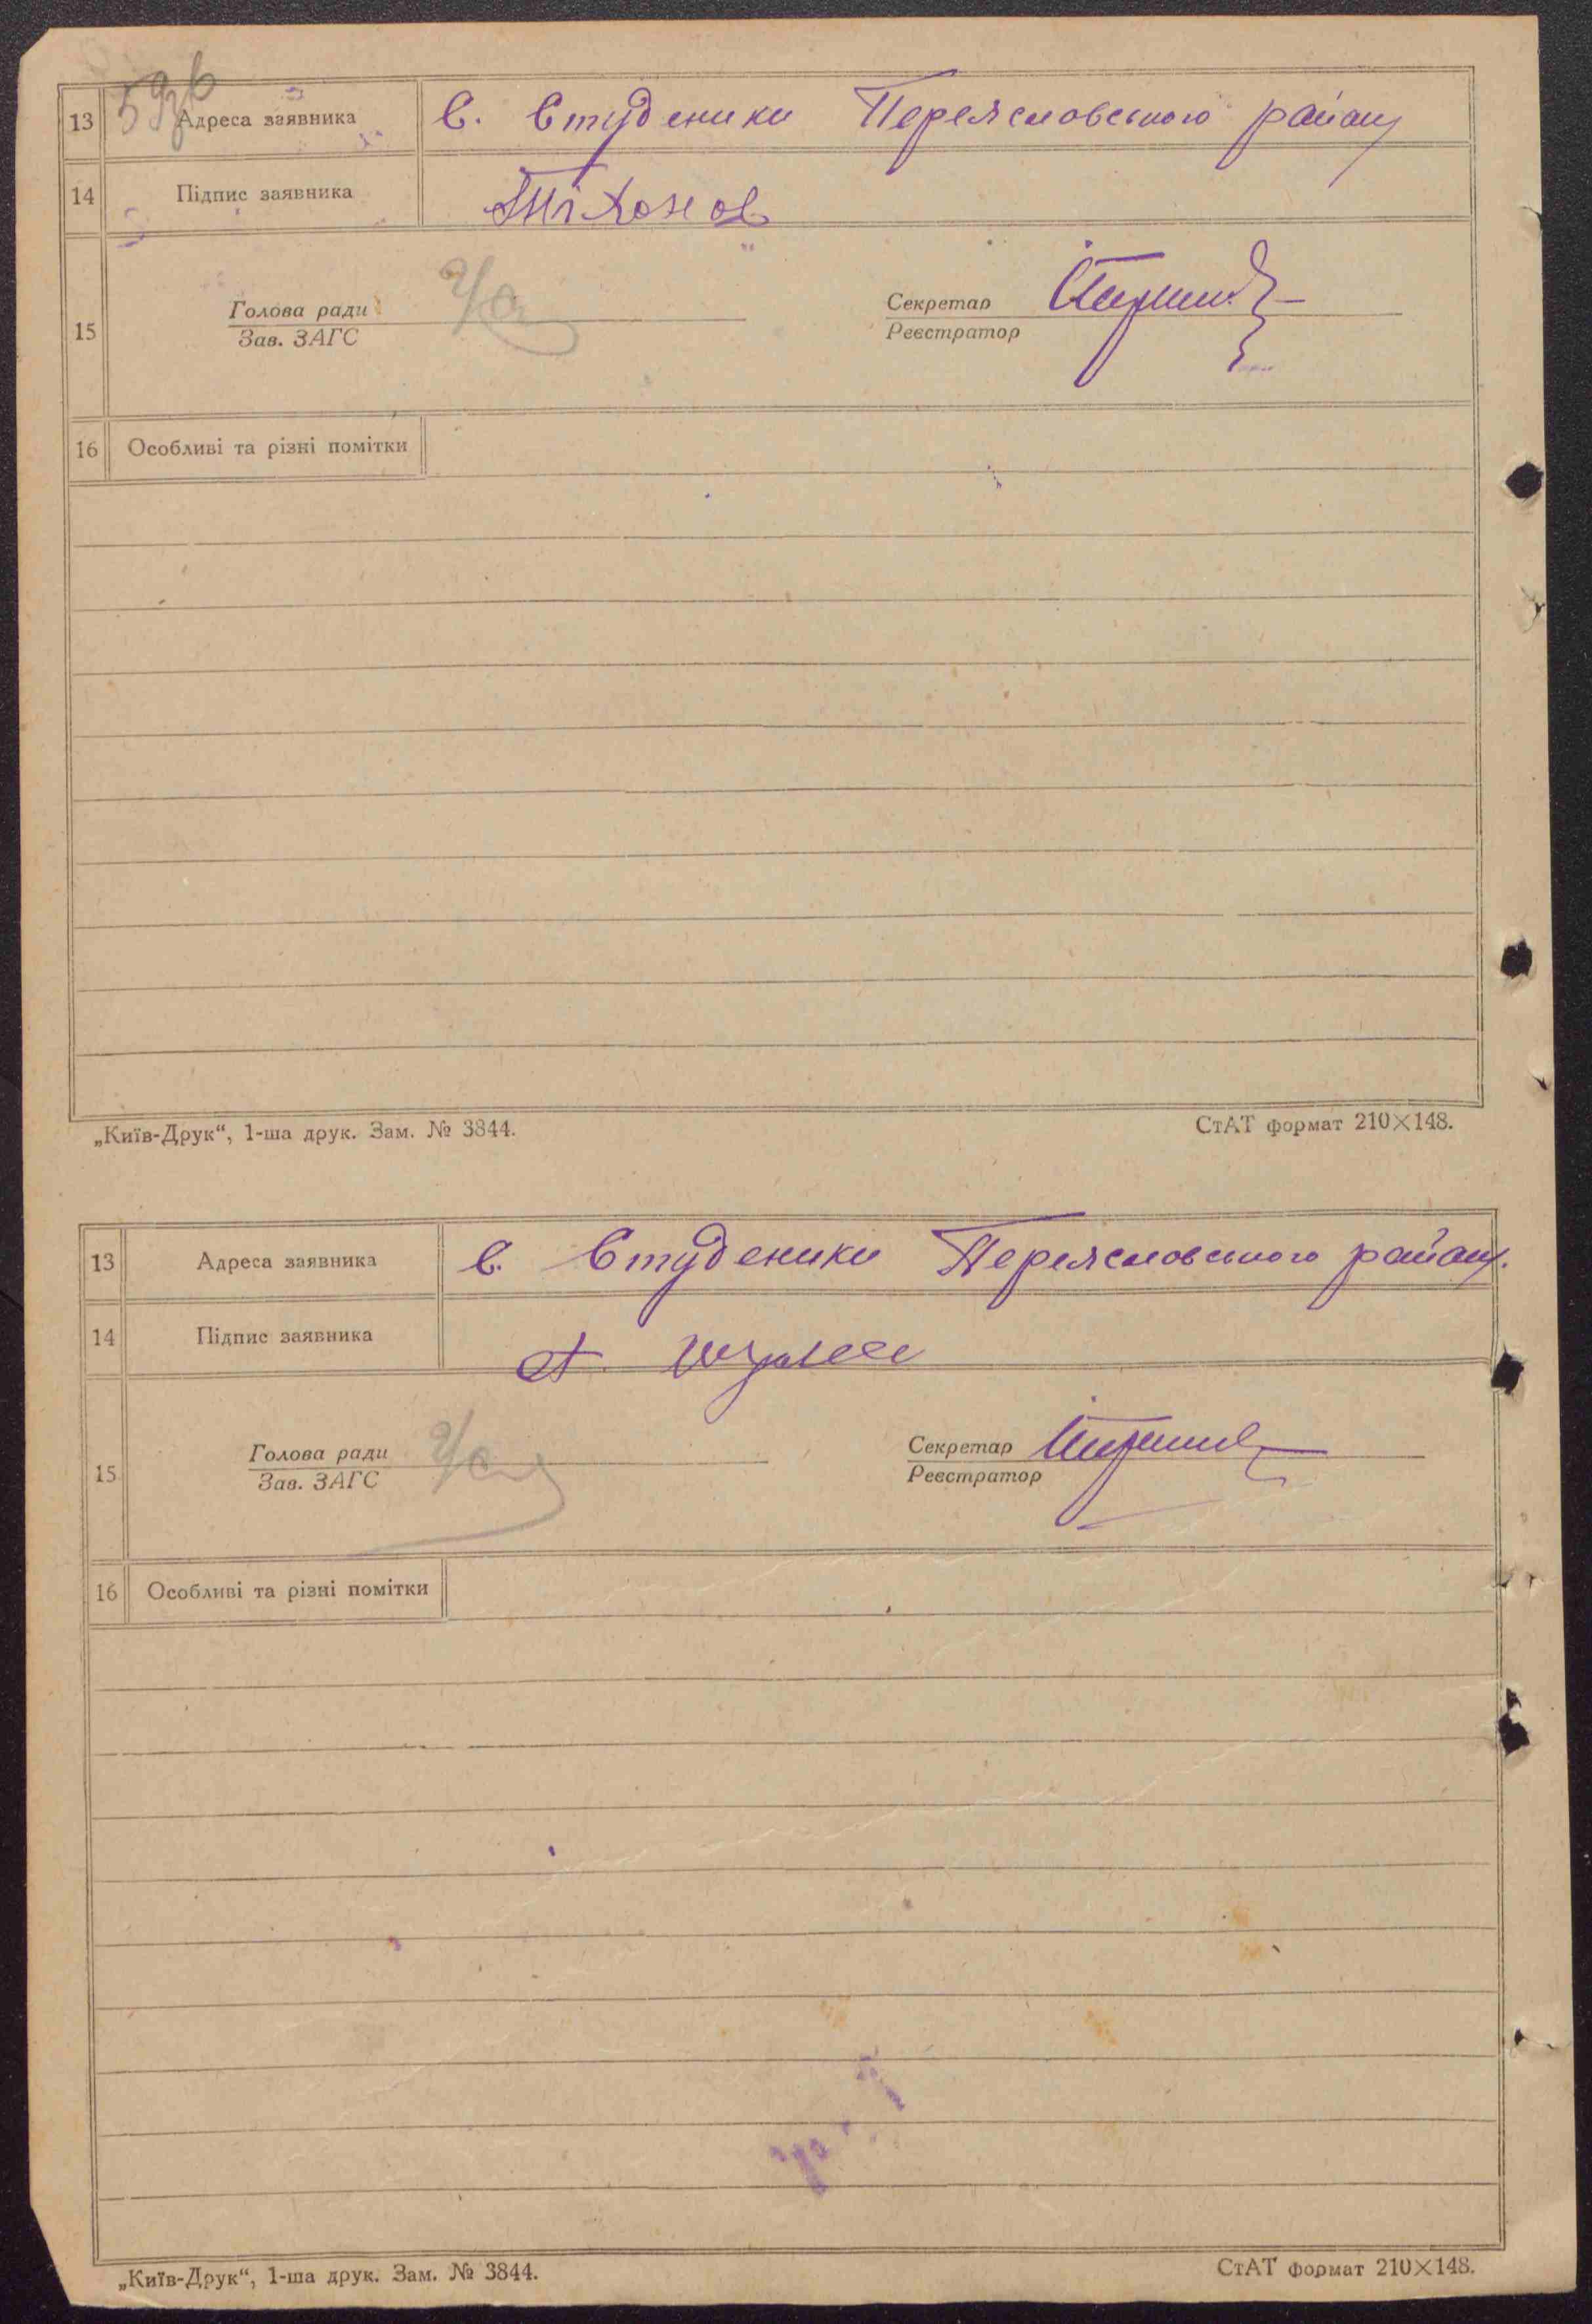 13 Адреса заявника С. Студеники Переясловського району
14 Підпис заявника Тихонов
15 Голова ради Секретар
Зав. ЗАГС Реєстратор
16 Особливі та різні помітки
„Київ-Друк“, 1-ша друк. Зам. № 3844. СтАТ формат 210×148.
13 Адреса заявника С. Студеники Переясловського району.
14 Підпис заявника А.
15 Голова ради Секретар
Зав. ЗАГС Реєстратор
16 Особливі та різні помітки
„Київ-Друк“, 1-ша друк. Зам. № 3844. СтАТ формат 210×148.